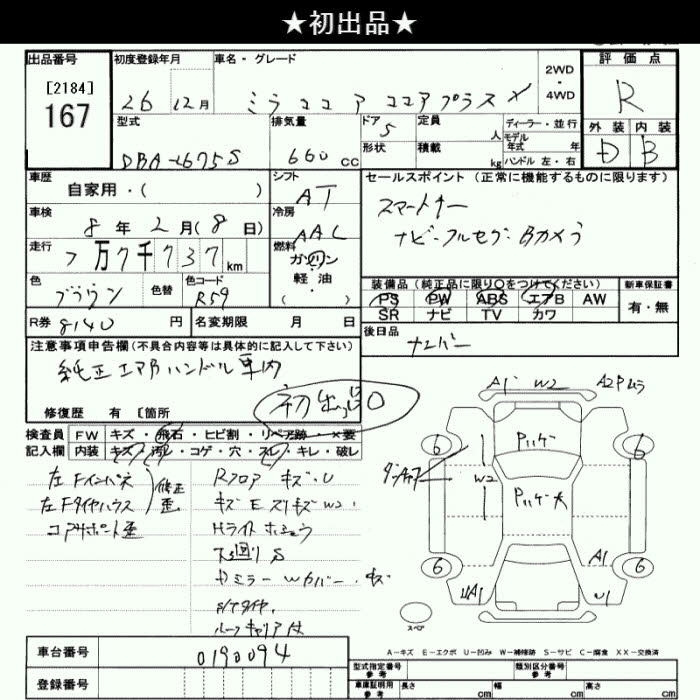 ★初出品★
出品番号
[2184]
167
初度登録年月
26年 12月
車名・グレード
ミラココア ココアプラスX
2WD
・
4WD
評価点
R
外装 内装
D B
型式
DBA-L675S
排気量
660 cc
ドア 5
形状
定員 人
積載 kg
ディーラー・並行
モデル年式 年
ハンドル 左・右
車歴
自家用・( )
シフト
AT
車検
8年 2月(8日)
冷房
AAC
走行
7万7千737km
燃料
ガソリン
軽油
( )
色
ブラウン
色替
色コード
R59
R券 8140 円
名変期限 月 日
セールスポイント(正常に機能するものに限ります)
スマートキー
ナビ・フルセグ・Bカメラ
装備品(純正品に限り○をつけてください)
PS PW ABS エアB AW
SR ナビ TV カワ
新車保証書
有・無
後日品
ナンバー
注意事項申告欄(不具合内容等は具体的に記入して下さい)
純正エアBハンドル車内
初出品
修復歴 有 [箇所
検査員
記入欄
FW キズ・飛石・ヒビ割・リペア跡・×要
内装 キズ・汚レ・コゲ・穴・スレ・キレ・破レ
左Fインパネ
左Fタイヤハウス
修正
歪
コアサポート歪
Rフロア キズ・U
キズ E スリキズ W2
Hライト
下廻りS
ドミラーWカバー キズ
ルーフキャリア付
A1 W2 A2
Pハゲ
W2
Pハゲ大
6 6
6 6
A1
UA1 U1
スペア
A-キズ E-エクボ U-凹み W-補修跡 S-サビ C-腐食 XX-交換済
車台番号
0190094
登録番号
型式指定番号
参考
類別区分番号
参考
車庫証明用
参考
長さ cm 幅 cm 高さ cm